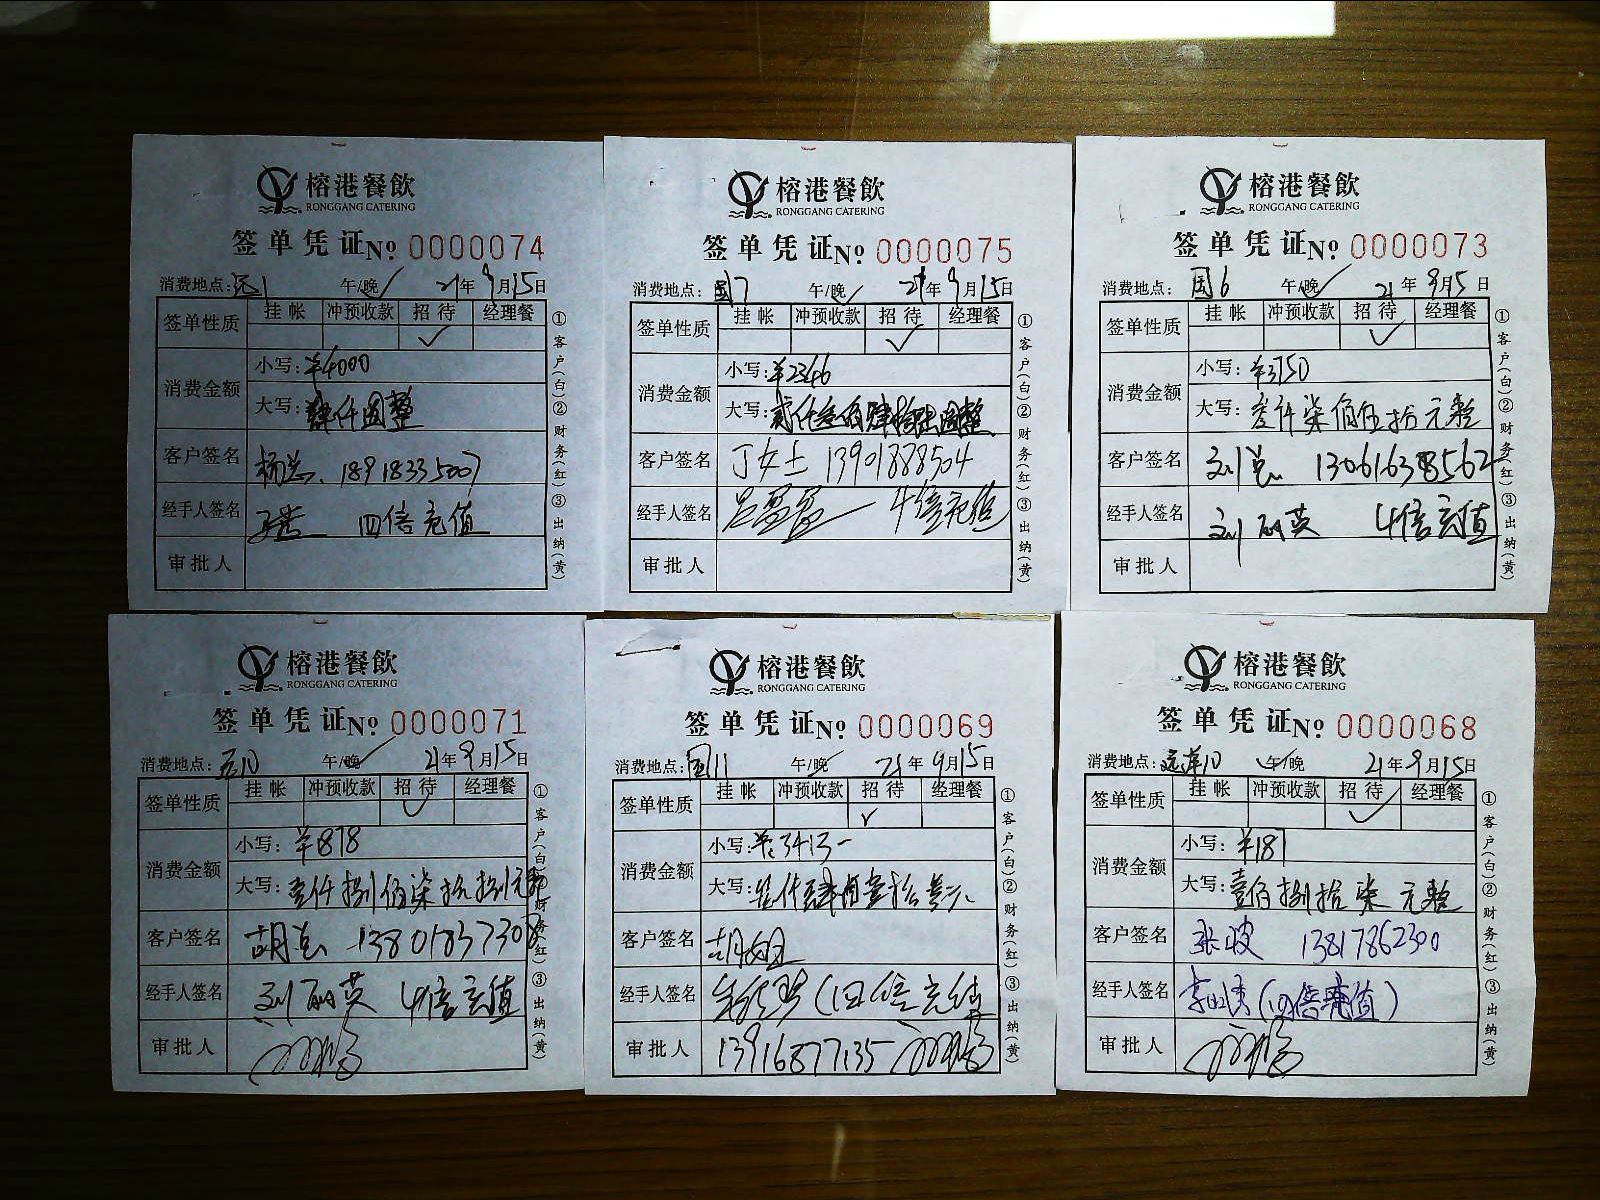 榕港餐飲
RONGGANG CATERING
签单凭证№ 0000074
消费地点: 1 午/晚 21年9月15日
签单性质 挂帐 冲预收款 招待 经理餐
消费金额 小写:¥4000
大写:肆仟圆整
客户签名 杨总 18918335007
经手人签名 四倍充值
审批人
①客户(白)②财务(红)③出纳(黄)
榕港餐飲
RONGGANG CATERING
签单凭证№ 0000075
消费地点:国7 午/晚 21年9月15日
签单性质 挂帐 冲预收款 招待 经理餐
消费金额 小写:¥2346
大写:贰仟叁佰肆拾陆圆整
客户签名 丁女士 13901888504
经手人签名 4倍充值
审批人
①客户(白)②财务(红)③出纳(黄)
榕港餐飲
RONGGANG CATERING
签单凭证№ 0000073
消费地点:国6 午/晚 21年9月5日
签单性质 挂帐 冲预收款 招待 经理餐
消费金额 小写:¥3750
大写:叁仟柒佰伍拾元整
客户签名 刘总 13061638562
经手人签名 刘丽英 4倍充值
审批人
①客户(白)②财务(红)③出纳(黄)
榕港餐飲
RONGGANG CATERING
签单凭证№ 0000071
消费地点: 10 午/晚 21年9月15日
签单性质 挂帐 冲预收款 招待 经理餐
消费金额 小写:¥1878
大写:壹仟捌佰柒拾捌元整
客户签名 胡总 13801837308
经手人签名 刘丽英 4倍充值
审批人
①客户(白)②财务(红)③出纳(黄)
榕港餐飲
RONGGANG CATERING
签单凭证№ 0000069
消费地点:国11 午/晚 21年9月15日
签单性质 挂帐 冲预收款 招待 经理餐
消费金额 小写:¥:3413-
大写:叁仟肆佰壹拾叁元
客户签名 胡姐
经手人签名 (四倍充值
审批人 13916877135
①客户(白)②财务(红)③出纳(黄)
榕港餐飲
RONGGANG CATERING
签单凭证№ 0000068
消费地点:远洋10 午/晚 21年9月15日
签单性质 挂帐 冲预收款 招待 经理餐
消费金额 小写:¥187
大写:壹佰捌拾柒元整
客户签名 张波 13817862300
经手人签名 (四倍充值)
审批人
①客户(白)②财务(红)③出纳(黄)